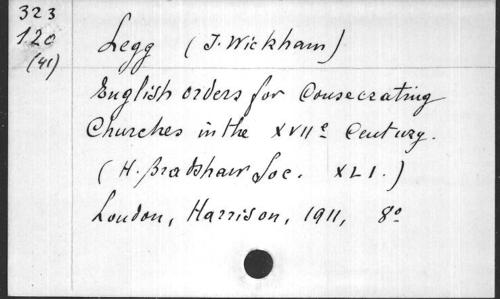 323
120
(41)
Legg (J. Wickham)
English orders for Consecrating
Churches in the XVIIe Century.
(H. Bradshaw Soc. XLI.)
London, Harrison, 1911, 8o